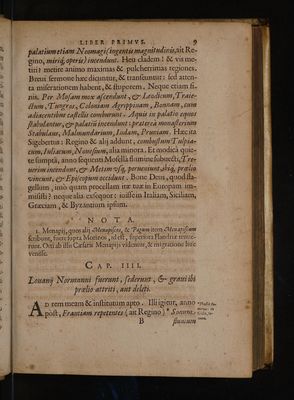 LIBER PRIMVS. 9
palatium etiam Neomagi (ingentis magnitudinis, ait Re-
gino, miriq; operis) incendunt. Heu cladem! & vt me-
tiri? metire animo maximas & pulcherrimas regiones.
Breui sermone hæc dicuntur, & transeuntur: sed atten-
ta miserationem habent, & stuporem. Neque etiam fi-
nis. Per Mosam mox ascendunt, & Leodium, Traie-
ctum, Tungros, Coloniam Agrippinam, Bonnam, cum
adiacentibus castellis comburunt. Aquis in palatio equos
stabulantur, & palatium incendunt: præterea monasterium
Stabulaus, Malmundarium, Indam, Prumiam. Hæc ita
Sigebertus: Regino & alij addunt, combustum Tulpia-
cum, Iuliacum, Nouesium, alia minora. Et modica quie-
te sumpta, anno sequenti Mosella flumine subuecti, Tre-
uerim incendunt, & Metim vsq; perueniunt, ibiq; prælio
vincunt, & Episcopum occidunt. Bone Deus, quod fla-
gellum, imò quam procellam iræ tuæ in Europam im-
misisti? neque alia exsequor: iuisse in Italiam, Siciliam,
Græciam, & Byzantium ipsum.
NOTA.
1. Menapij, quos alij Menapiscos, & Pagum item Menapiscum
scribunt, fuere supra Morinos, id est, superiora Flandriæ tenue-
runt.
CAP. IIII.
Louanij Normanni fuerunt, sederunt, & graui ibi
prælio attriti, aut deleti.
AD rem meam & institutum apto. Illi igitur, anno
post, Frantiam repetentes (ait Regino) Somnæ
B fluuium